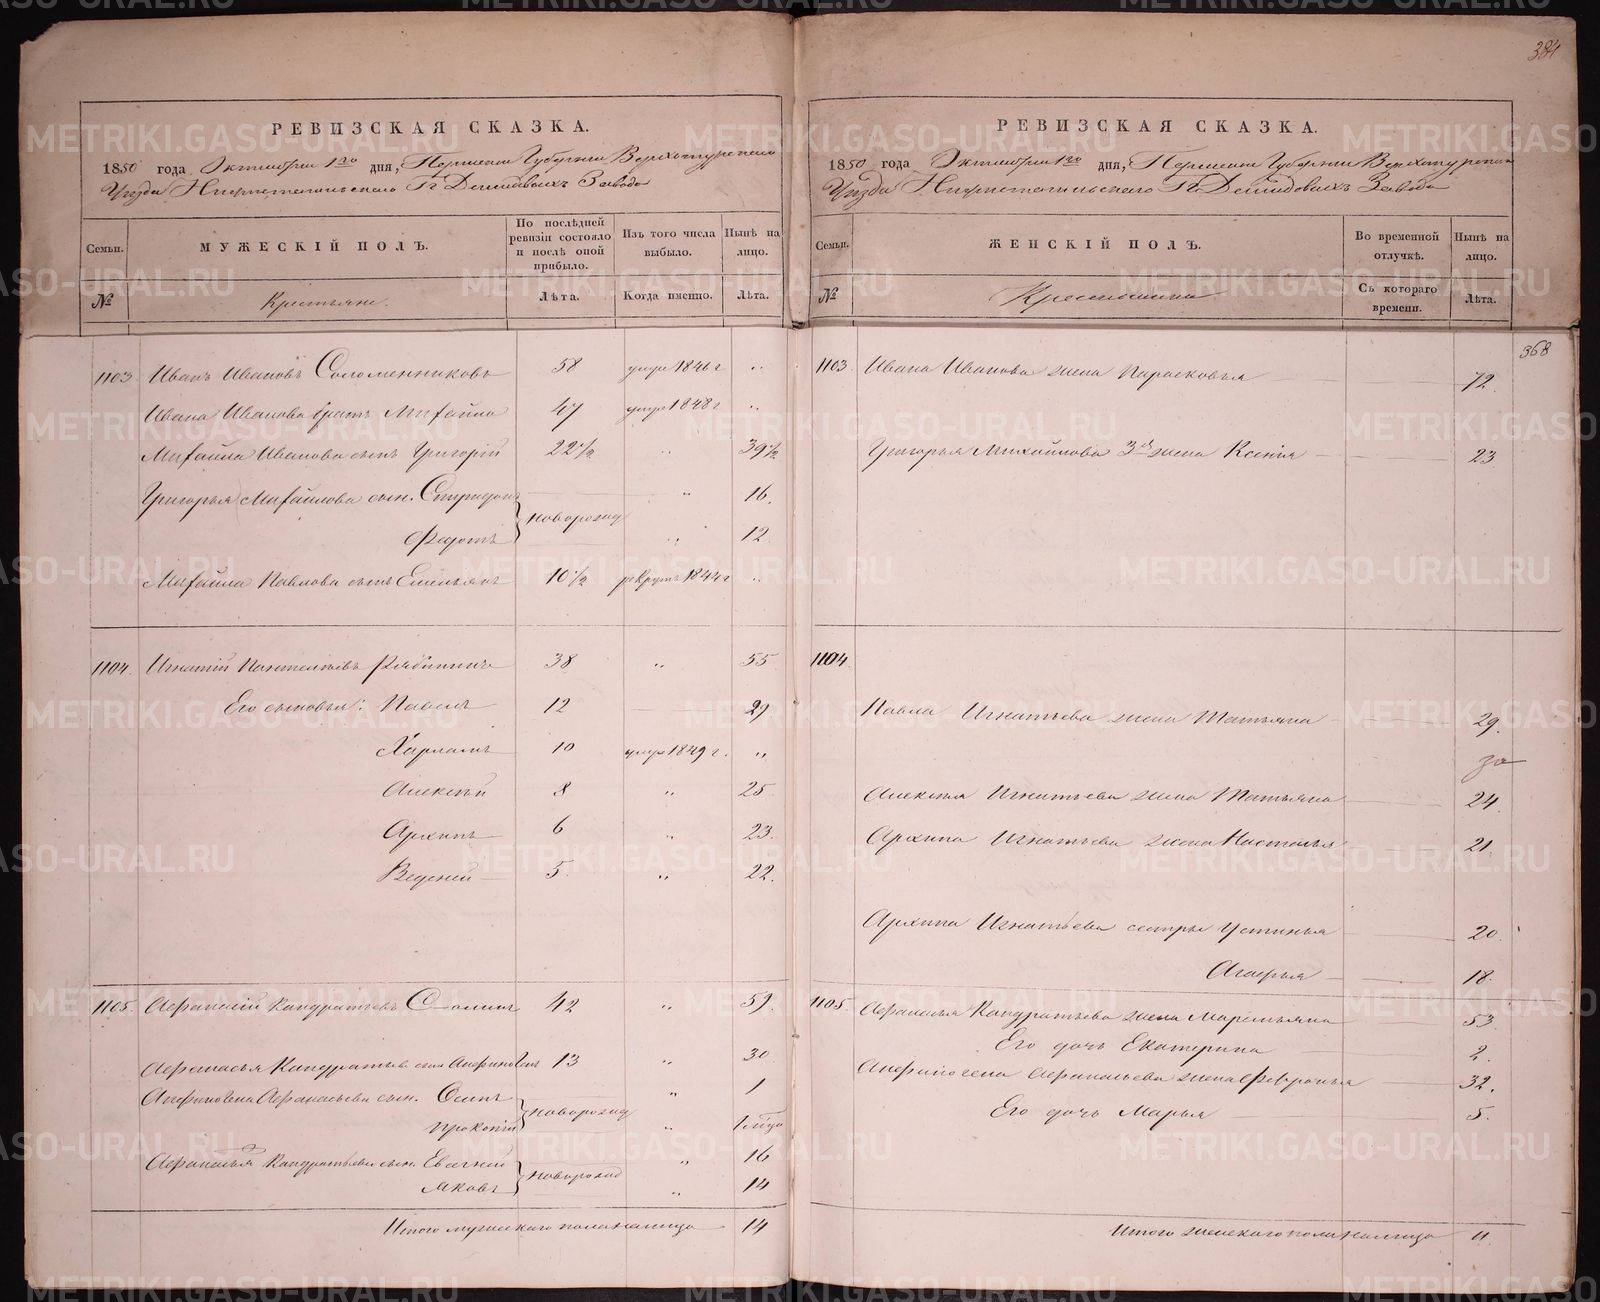 384
РЕВИЗСКАЯ СКАЗКА.
1850 года Октября 1го дня, Пермской Губернии Верхотурского
Уѣзда Нижнетагильского Гг. Демидовыхъ Завода
Семьи. МУЖЕСКІЙ ПОЛЪ. По послѣдней ревизіи состояло и послѣ оной прибыло. Изъ того числа выбыло. Нынѣ на лицо.
№ Крестьяне. Лѣта. Когда именно. Лѣта.
1103 Иванъ Ивановъ Соломенниковъ 58 умре 1846 г „
Ивана Иванова братъ Михайла 47 умре 1848 г „
Михайла Иванова сынъ Григорій 22 1/2 „ 39 1/2
Григорья Михайлова сын. Спиридонъ „ 16.
новорожд
Федотъ „ 12
Михайла Павлова сынъ Емельянъ 10 1/2 рекрутъ 1844 г „
1104. Игнатій Пантелѣевъ Рябининъ 38 „ 55
Его сыновья: Павелъ 12 29
Харламъ 10 умре 1849 г. „
Алексѣй 8 „ 25
Архипъ 6 „ 23.
Веденей 5. „ 22.
1105. Афанасій Кандратьевъ 42 „ 59.
Афанасья Кандратьева сын Анфиногенъ 13 „ 30.
Афанасьева сын. Осипъ „ 1
новорожд
Прокопій „
Афанасья Кандратьева сын. Евгеній „ 16
новорожд
Яковъ „ 14
Итого мужескаго пола налицо 14
РЕВИЗСКАЯ СКАЗКА.
1850 года Октября 1го дня, Пермской Губерніи Верхотурского
Уѣзда Нижнетагильского Гг. Демидовыхъ Завода
Семьи. ЖЕНСКІЙ ПОЛЪ. Во временной отлучкѣ. Нынѣ на лицо.
№ Крестьянки Съ котораго времени. Лѣта.
368
1103. Ивана Иванова жена Парасковья 72.
Григорья Михайлова 3я жена Ксенія 23
1104
Павла Игнатьева жена Татьяна 29.
Алексѣя Игнатьева жена Татьяна 24.
Архипа Игнатьева жена Настасья 21.
Архипа Игнатьева сестры Устинья 20.
Агафья 18.
1105. Афанасья Кандратьева жена Маремьяна 53.
Его дочь Екатерина 2.
Анфиногена Афанасьева жена Февронья 32.
Его дочь Марья 5.
Итого женскаго пола налицо 11.
METRIKI.GASO-URAL.RU